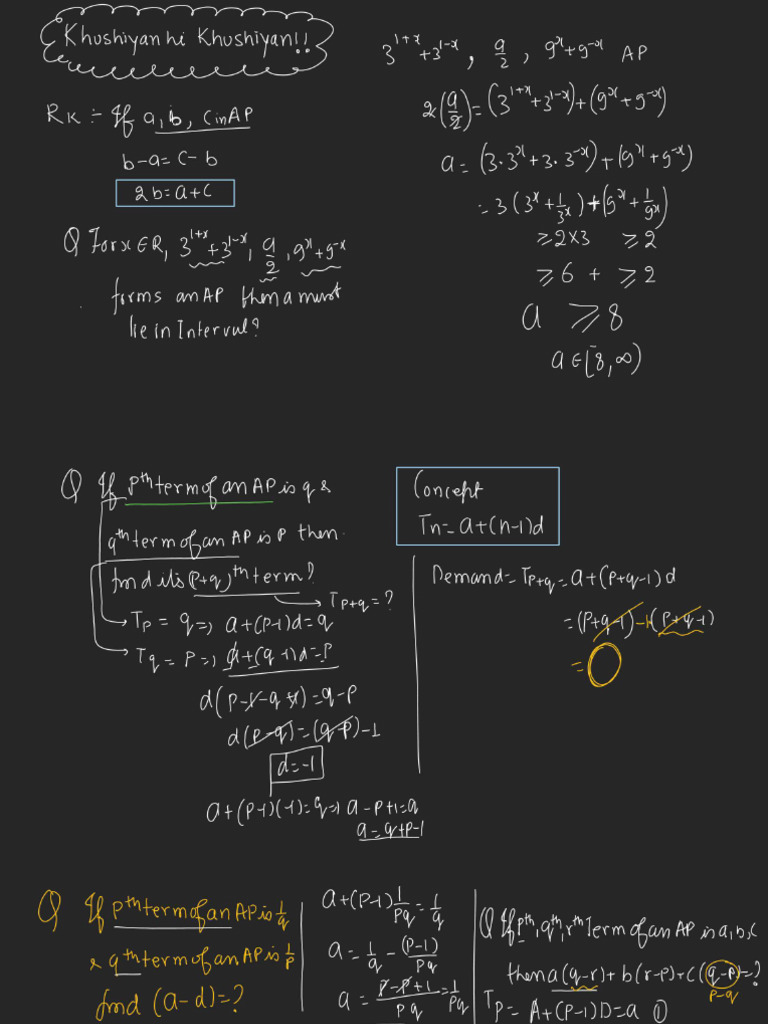 Khushiyan hi Khushiyan!!
RK :- If a, b, c in AP
b-a = c-b
2b = a+c
Q For x∈R, 3^{1+x}+3^{1-x}, a/2, 9^x+9^{-x}
forms an AP then a must
lie in Interval?
3^{1+x}+3^{1-x}, a/2, 9^x+9^{-x} AP
2(a/2) = (3^{1+x}+3^{1-x})+(9^x+9^{-x})
a = (3.3^x+3.3^{-x})+(9^x+9^{-x})
= 3(3^x+1/3^x)+(9^x+1/9^x)
≥2×3 ≥2
≥6 + ≥2
a ≥8
a∈[8,∞)
Q If Pth term of an AP is q &
qth term of an AP is P then
find its (P+q)th term?
T_{P+q}=?
T_P = q ⇒ a+(P-1)d=q
T_q = P ⇒ a+(q-1)d=P
d(P-1-q+1)=q-P
d(P-q)=(q-P)-1
d=-1
a+(P-1)(-1)=q ⇒ a-P+1=q
a=q+P-1
Concept
Tn=a+(n-1)d
Demand=T_{P+q}=a+(P+q-1)d
=(P+q-1)-1(P+q-1)
=0
Q If Pth term of an AP is 1/q
& qth term of an AP is 1/P
find (a-d)=?
a+(P-1)1/Pq=1/q
a=1/q-(P-1)/Pq
a=P-P+1/Pq=1/Pq
Q If Pth, qth, rth Term of an AP is a, b, c
then a(q-r)+b(r-P)+c(q-P)=?
P-q
T_P=A+(P-1)D=a ①